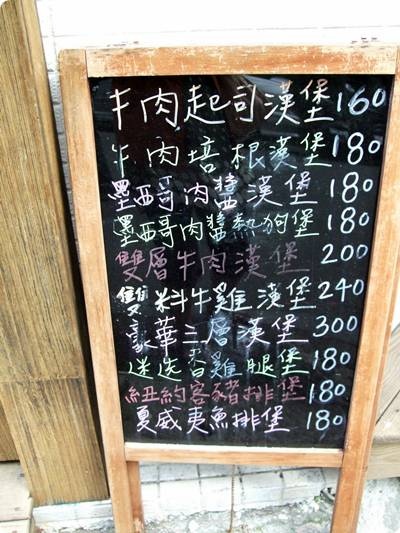 牛肉起司漢堡160
牛肉培根漢堡180
墨哥肉醬漢堡180
墨哥肉醬熱狗堡180
雙層牛肉漢堡200
雙料牛雞漢堡240
豪華三層漢堡300
迷迭香雞腿堡180
紐約客豬排堡180
夏威夷魚排堡180